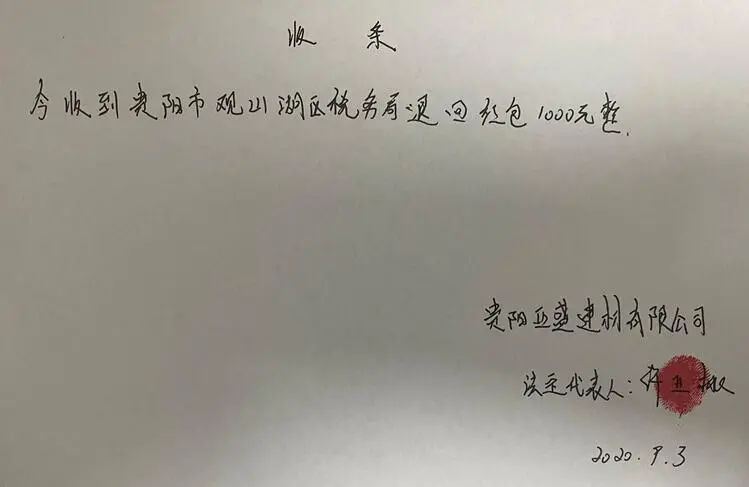 收条
今收到贵阳市观山湖区税务局退回红包1000元整.
贵阳亚盛建材有限公司
法定代表人:许亚
2020.9.3